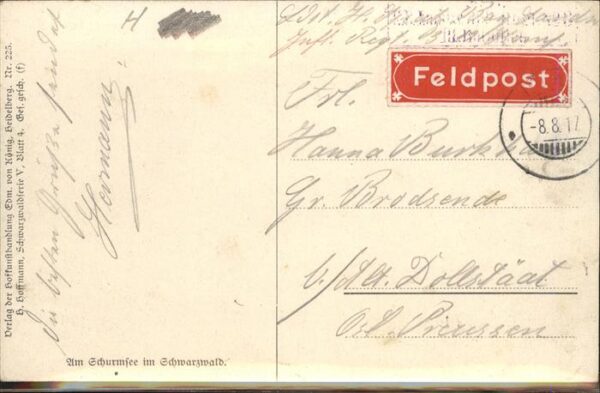 Verlag der Hofkunsthandlung Edm. von König, Heidelberg. Nr. 225.
H. Hoffmann, Schwarzwaldserie V, Blatt 4. Ges. gesch. (f)
Die besten Grüße sendet
Hermann!
H
Am Schurmsee im Schwarzwald.
Inft. Regt.
Feldpost
-8.8.17
Frl.
Hanna
Gr. Brodsende
b/ Alt. Dollstäät
Preussen